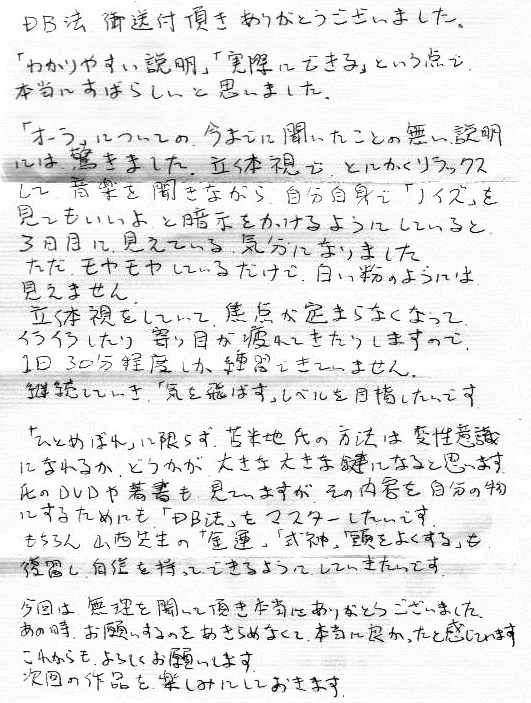 DB法 御送付頂きありがとうございました。
「わかりやすい説明」「実際にできる」という点で
本当にすばらしいと思いました。
「オーラ」についての 今までに聞いたことの無い説明
には 驚きました。立体視で とにかくリラックス
して 音楽を聞きながら 自分自身で「ノイズ」を
見てもいいよ と暗示をかけるようにしていると
3日目に 見えている 気分になりました
ただ モヤモヤしているだけで 白い粉のようには
見えません
立体視をしていて 焦点が定まらなくなって
イライラしたり 寄り目が疲れてきたりしますので
1日 30分程度しか 練習できていません。
継続していき「気を飛ばす」レベルを目指したいです
「ひとめぼれ」に限らず 苫米地氏の方法は 変性意識
になれるか どうかが 大きな大きな鍵になると思います
氏のDVDや著書も 見ていますが その内容を自分の物
にするためにも「DB法」をマスターしたいです
もちろん 山西先生の「金運」「式神」「頭をよくする」も
復習し 自信を持ってできるようにしていきたいです
今回は 無理を聞いて頂き本当にありがとうございました
あの時 お願いするのをあきらめなくて 本当に良かったと感じています
これからも よろしくお願いします
次回の作品を 楽しみにしておきます